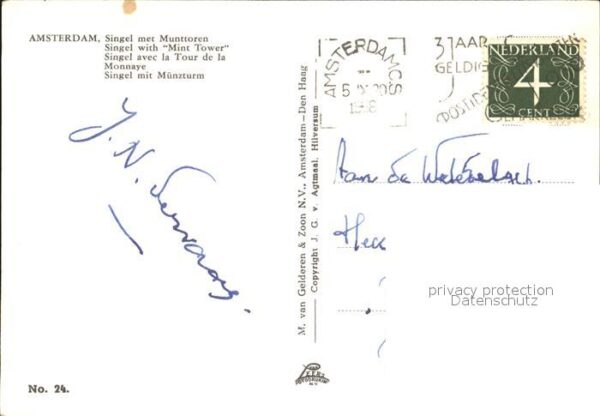 AMSTERDAM, Singel met Munttoren
Singel with "Mint Tower"
Singel avec la Tour de la
Monnaye
Singel mit Münzturm
J. N.
M. van Gelderen & Zoon N.V., Amsterdam—Den Haag
Copyright J. G. v. Agtmaal, Hilversum
AMSTERDAM CS
5
JAAR
GELDIG
NEDERLAND
4
CENT
Aan de
privacy protection
Datenschutz
No. 24.